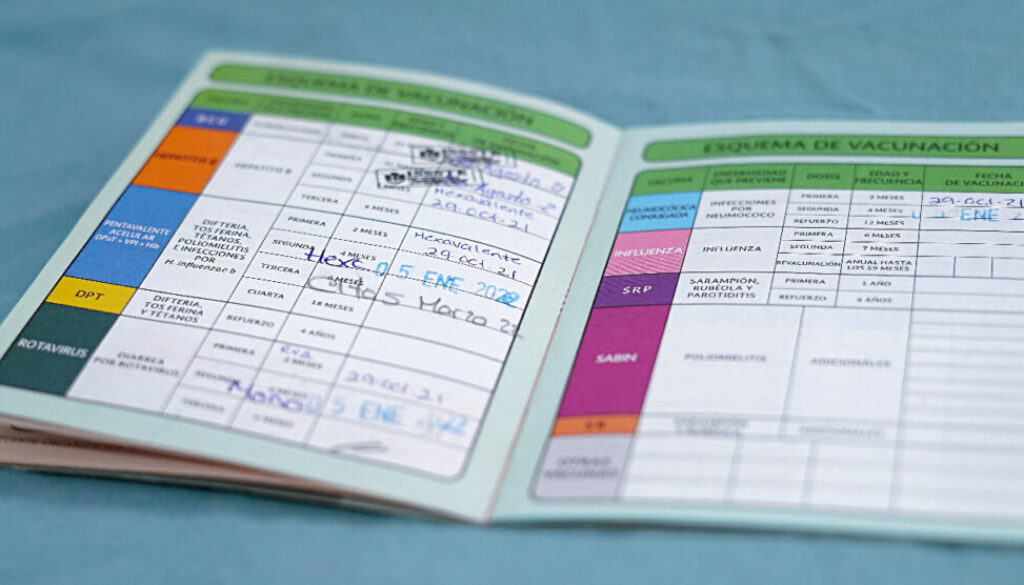 ESQUEMA DE VACUNACIÓN
BCG
HEPATITIS B
HEPATITIS B
PRIMERA
SEGUNDA
TERCERA
Agosto 2
Agosto 2
Hexavalente
29-Oct-21
PENTAVALENTE
ACELULAR
DPaT + VPI + Hib
DIFTERIA,
TOS FERINA,
TÉTANOS,
POLIOMIELITIS
E INFECCIONES
POR
H. influenzae b
PRIMERA
2 MESES
Hexavalente
29 Oct 21
SEGUNDA
4 MESES
Hexa
05 ENE 2022
TERCERA
6 MESES
Marzo 22
CUARTA
18 MESES
DPT
DIFTERIA,
TOS FERINA
Y TÉTANOS
REFUERZO
4 AÑOS
ROTAVIRUS
DIARREA
POR ROTAVIRUS
PRIMERA
2 MESES
29-Oct-21
SEGUNDA
05 ENE 2022
TERCERA
ESQUEMA DE VACUNACIÓN
VACUNA
ENFERMEDAD
QUE PREVIENE
DOSIS
EDAD Y
FRECUENCIA
FECHA
DE VACUNACI
NEUMOCÓCICA
CONJUGADA
INFECCIONES
POR
NEUMOCOCO
PRIMERA
2 MESES
29-Oct-21
SEGUNDA
4 MESES
ENE
REFUERZO
12 MESES
INFLUENZA
INFLUENZA
PRIMERA
6 MESES
SEGUNDA
7 MESES
REVACUNACIÓN
ANUAL HASTA
LOS 59 MESES
SRP
SARAMPIÓN,
RUBÉOLA Y
PAROTIDITIS
PRIMERA
1 AÑO
REFUERZO
6 AÑOS
SABIN
POLIOMIELITIS
ADICIONALES
SR
ADICIONALES
OTRAS
VACUNAS